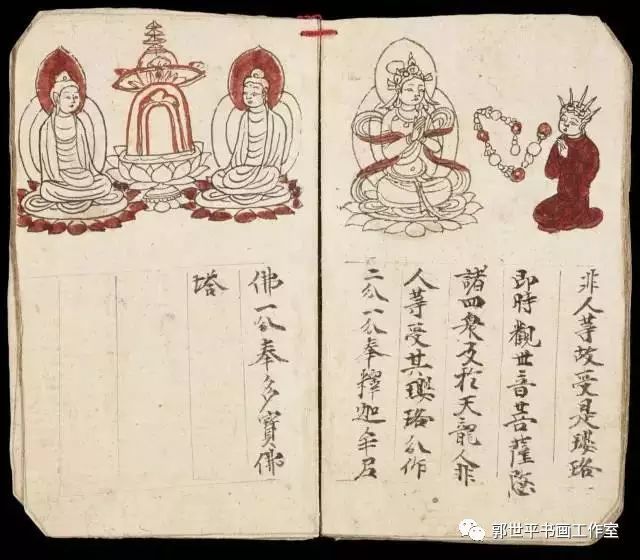 非人等故受是瓔珞
即時觀世音菩薩愍
諸四衆及於天龍人非
人等受其瓔珞分作
二分一分奉釋迦牟尼
佛一分奉多寶佛
塔
郭世平书画工作室